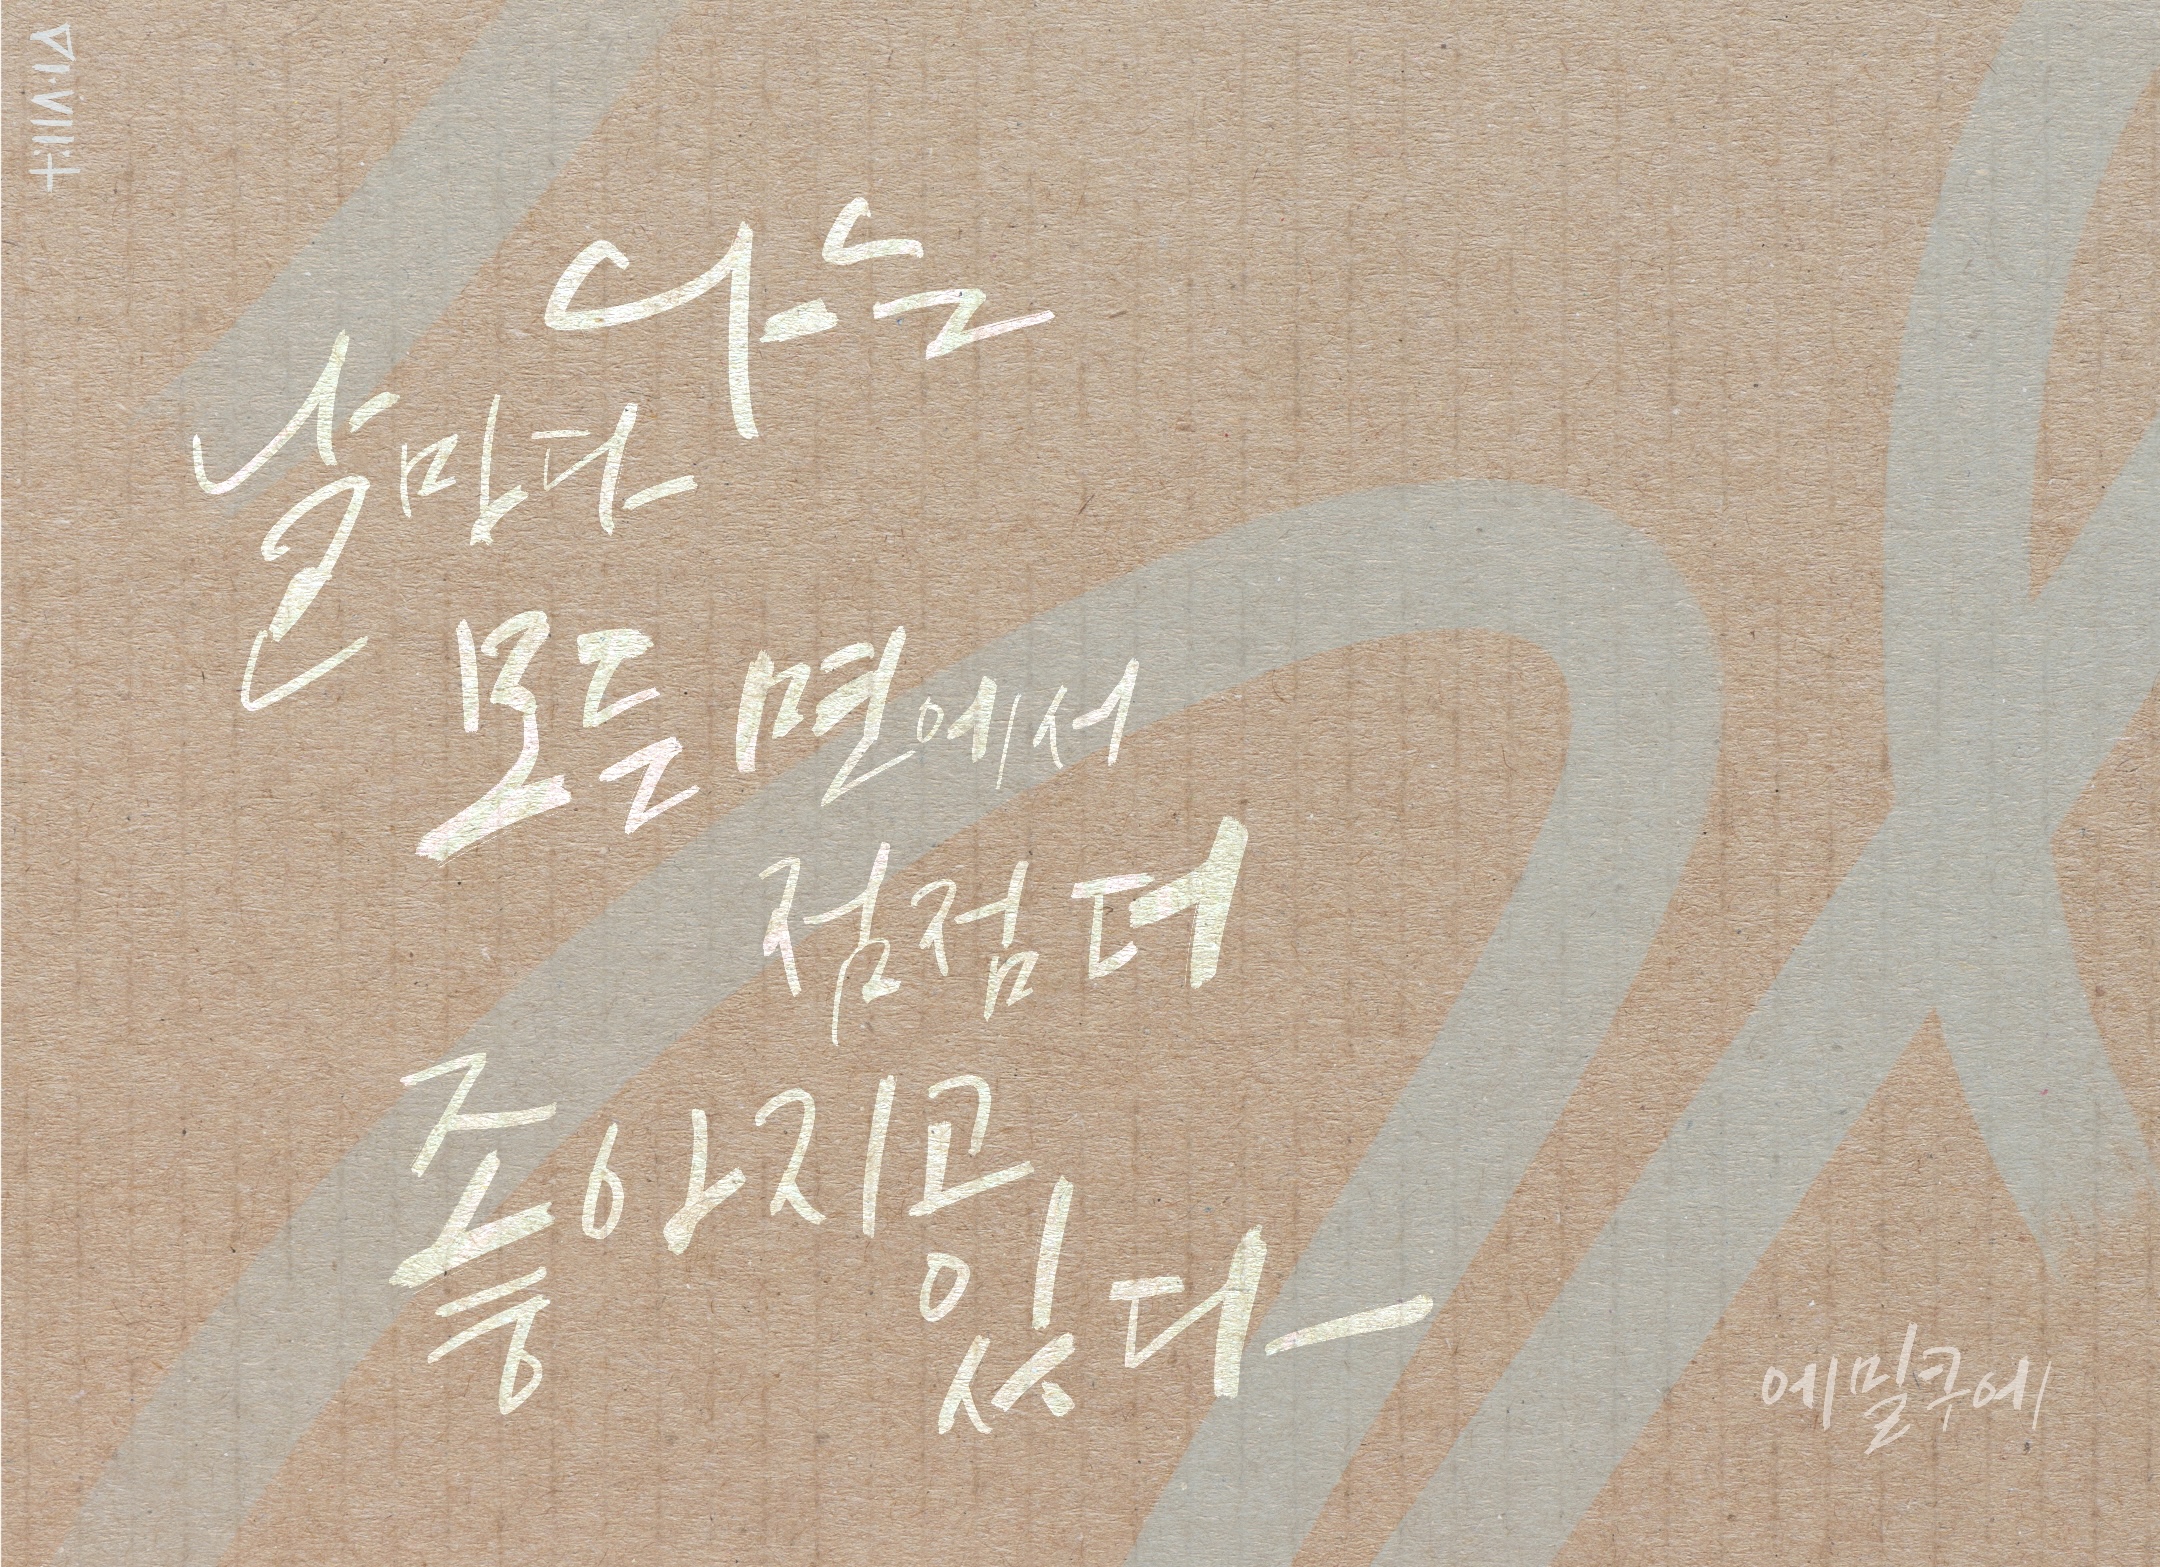 나는
날마다
모든 면에서
점점 더
좋아지고
있다
에밀쿠에